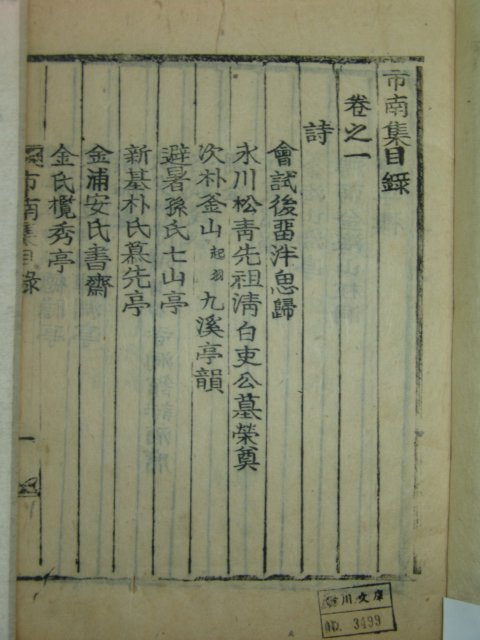 市南集目錄
卷之一
詩
會試後留泮思歸
永川松靑先祖淸白吏公墓榮奠
次朴釜山起羽九溪亭韻
避暑孫氏七山亭
新基朴氏慕先亭
金浦安氏書齋
金氏欖秀亭
市南集目錄
一
川文庫
NO. 3499